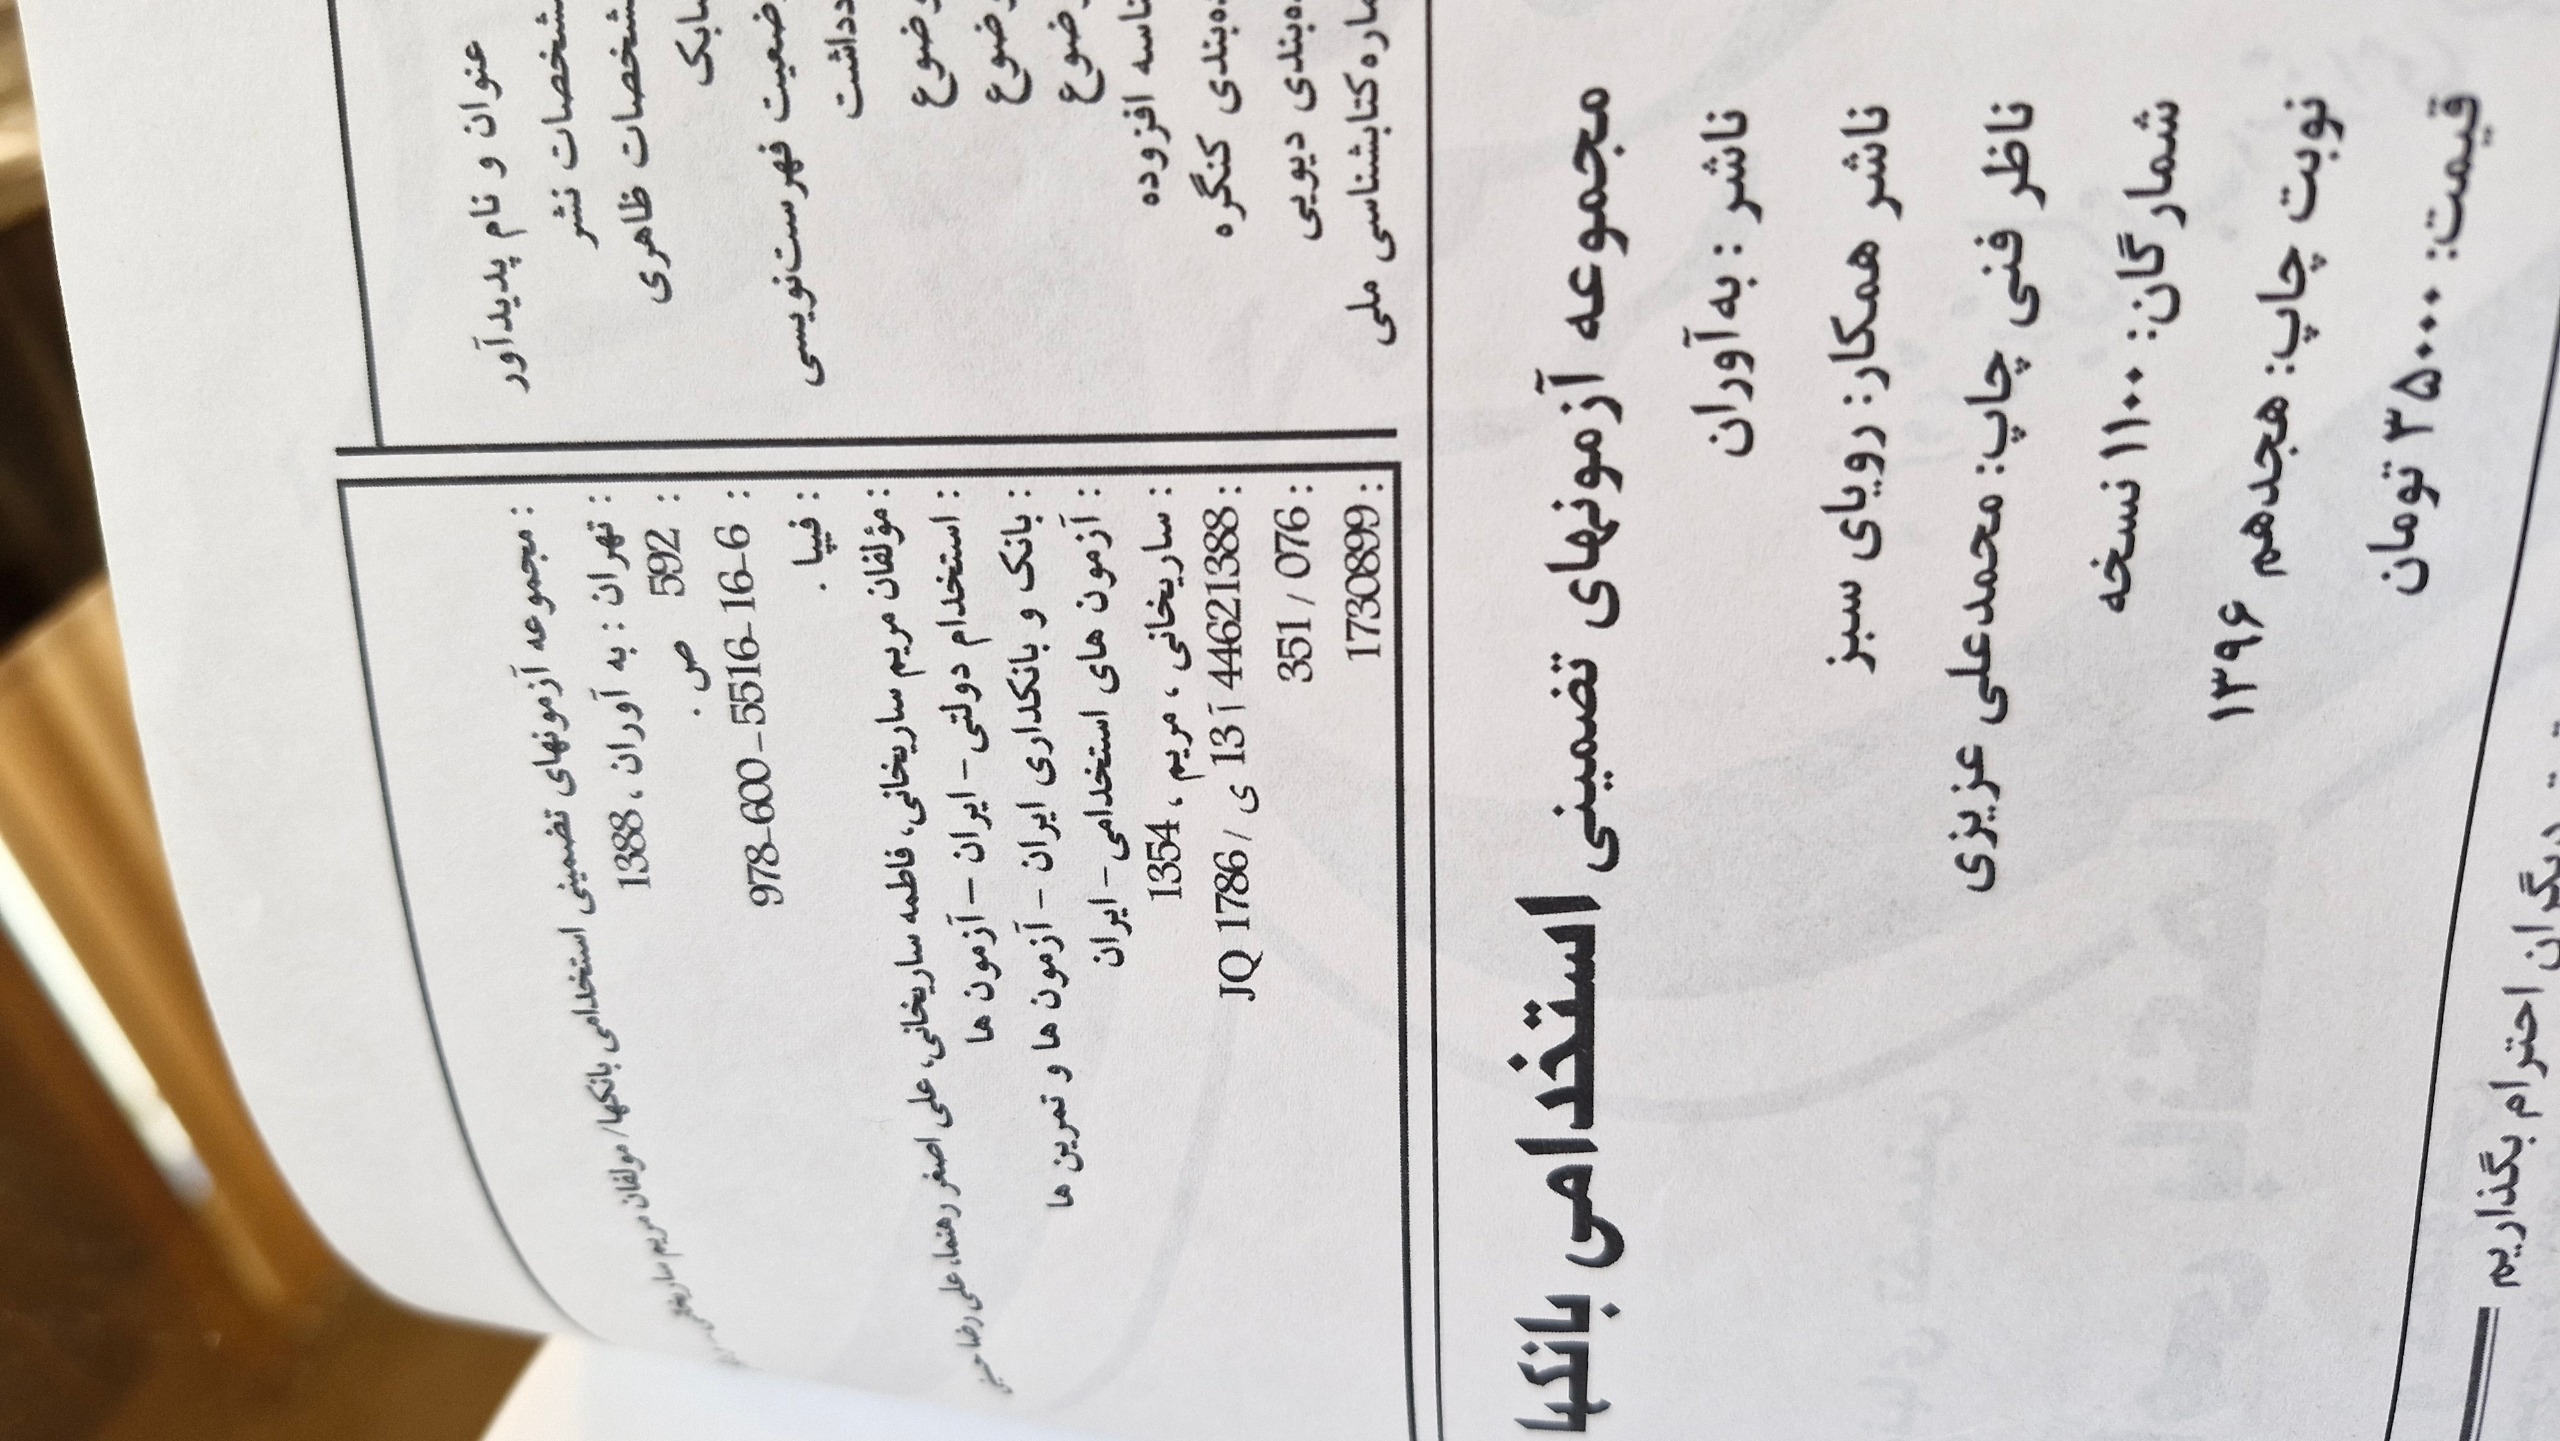 عنوان و نام پدیدآور : مجموعه آزمونهای تضمینی استخدامی بانکها/ مولفان مریم ساریخانی
مشخصات نشر : تهران : به آوران ، 1388
مشخصات ظاهری : 592 ص .
شابک : 978-600-5516-16-6
وضعیت فهرست‌نویسی : فیپا .
یادداشت : مؤلفان مریم ساریخانی، فاطمه ساریخانی، علی اصغر رهنما، علی رضا
موضوع : استخدام دولتی - ایران - آزمون ها
موضوع : بانک و بانکداری ایران - آزمون ها و تمرین ها
موضوع : آزمون های استخدامی - ایران
شناسه افزوده : ساریخانی ، مریم ، 1354
رده‌بندی کنگره : JQ 1786 / ی 13 آ 44621388
رده‌بندی دیویی : 351 / 076
شماره کتابشناسی ملی : 1730899
مجموعه آزمونهای تضمینی استخدامی بانکها
ناشر : به‌آوران
ناشر همکار: رویای سبز
ناظر فنی چاپ: محمدعلی عزیزی
شمارگان: ۱۱۰۰ نسخه
نوبت چاپ: هجدهم ۱۳۹۶
قیمت: ۳۵۰۰۰ تومان
دیگران احترام بگذاریم